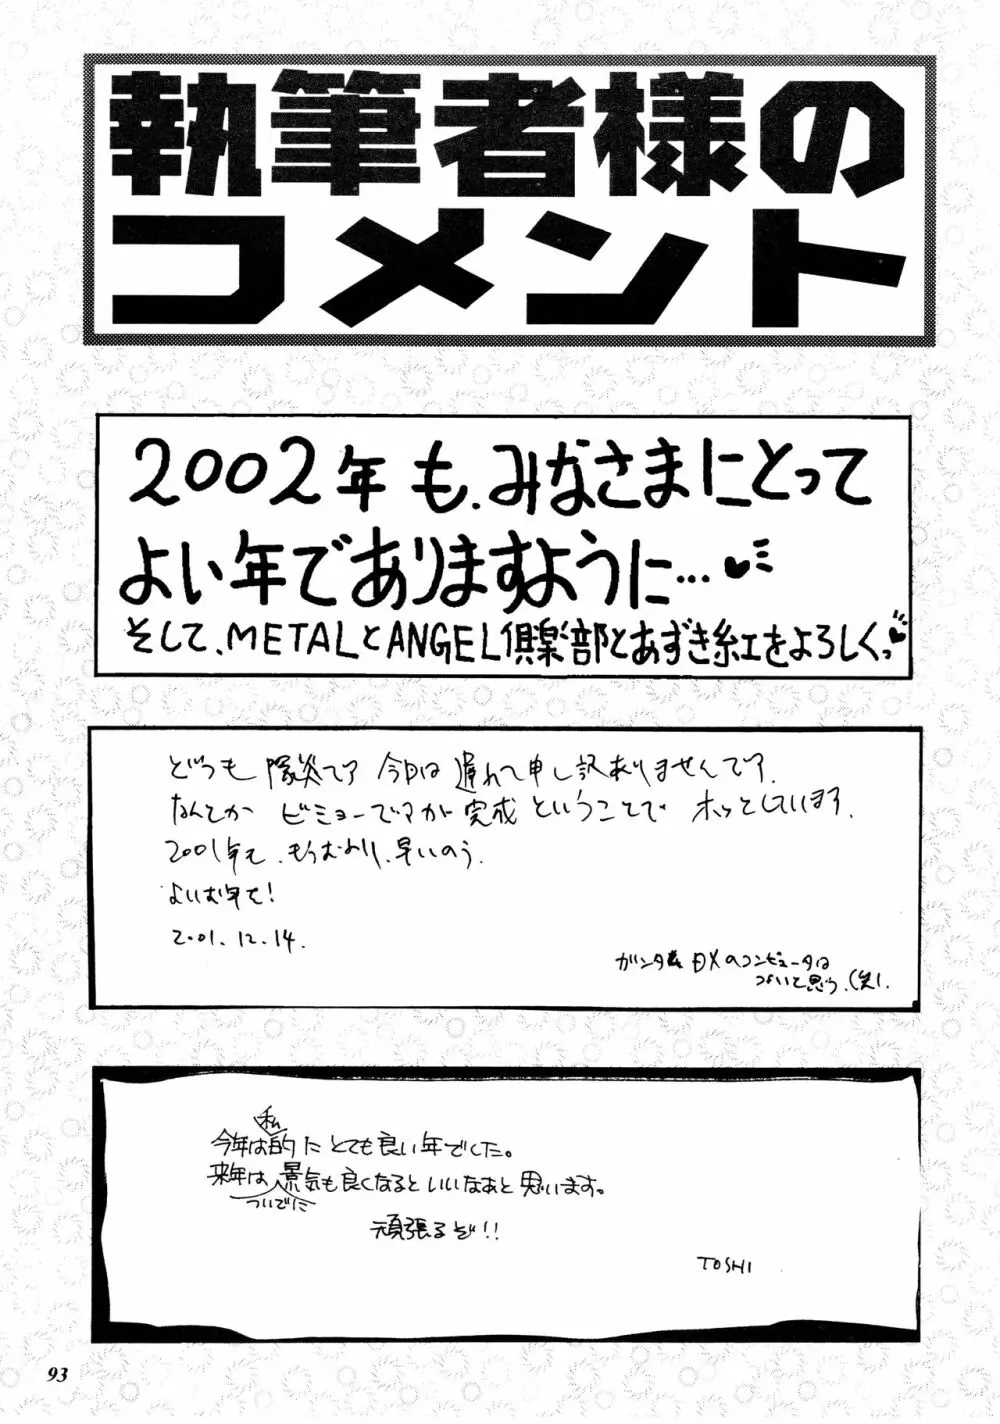 執筆者様の
コメント
2002年も、みなさまにとって
よい年でありますように…
そして、METALとANGEL倶楽部とあずき紅をよろしくっ
どうも 隊炎です 今回は遅れて申し訳ありませんです。
なんとか ビミョーですが完成 ということで ホッとしています。
2001年も、もうむより、早いのう。
よいお年を!
2001.12.14.
ガンダム DXのコンピュータは
つよいと思う。(笑)。
私
今年は的に とても良い年でした。
来年は景気も良くなるといいなあと思います。
ついでに
頑張るぞ!!
TOSHI
93